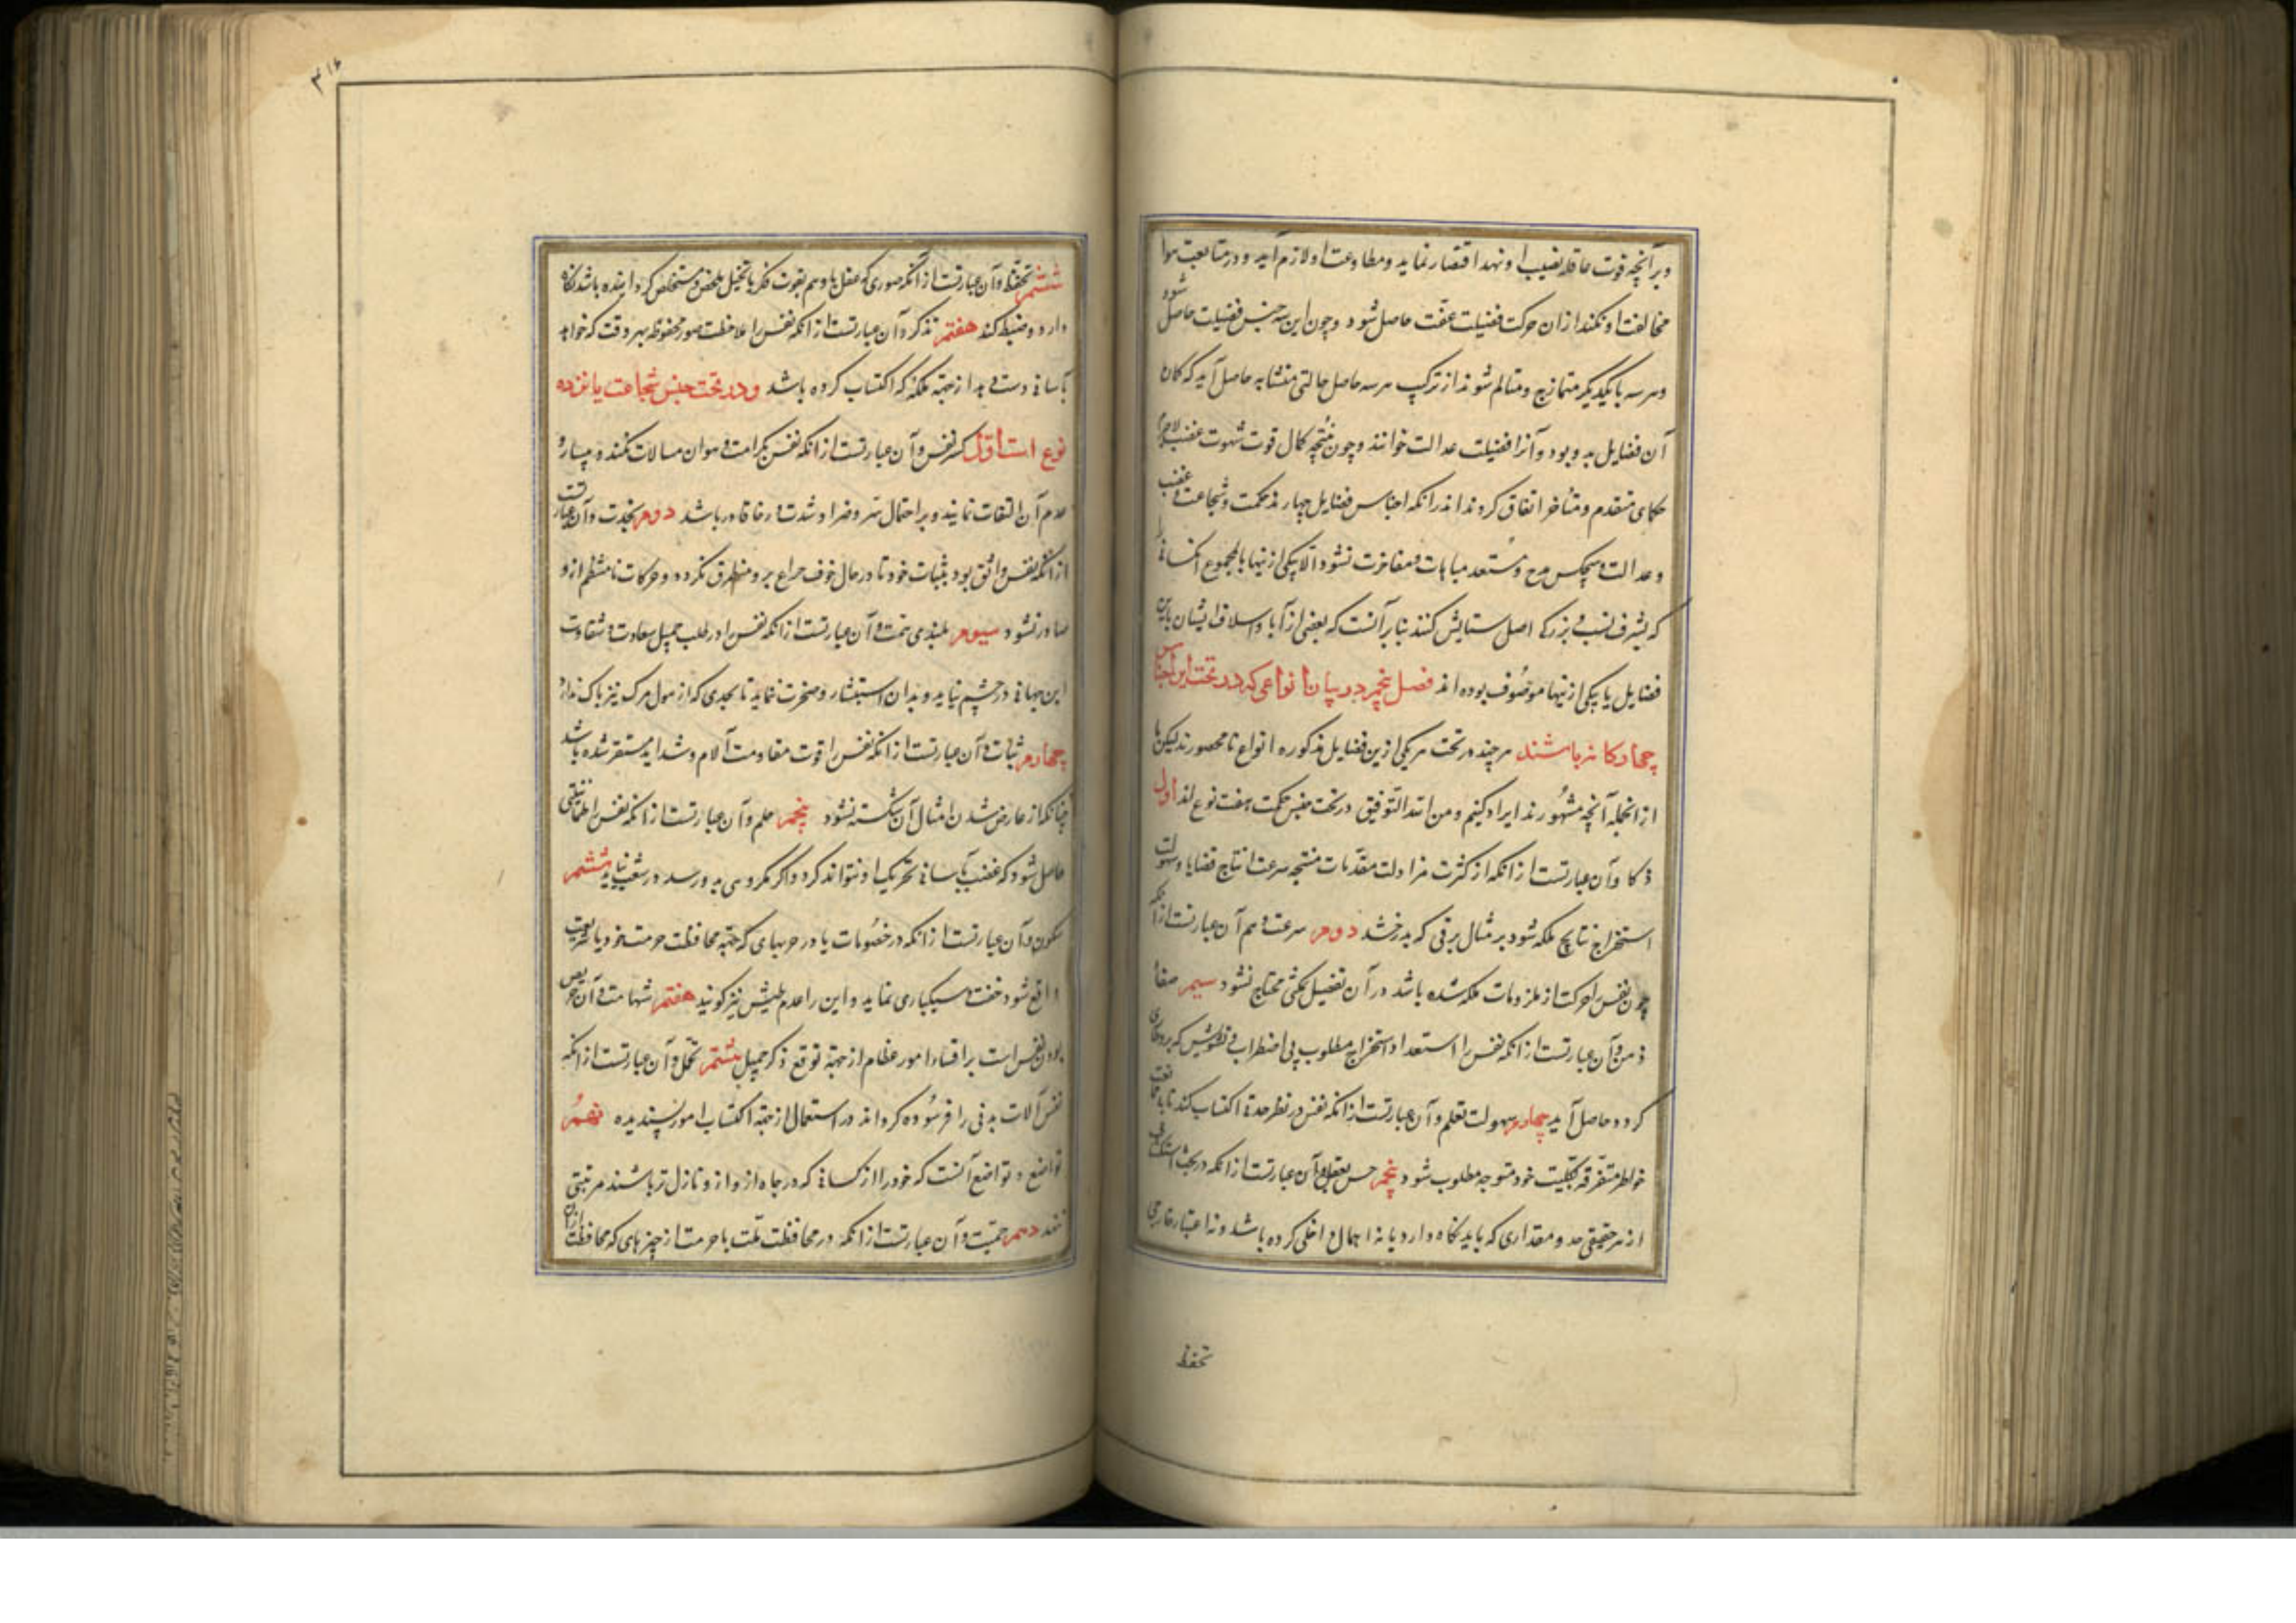 وبر آنچه قوت عاقله نصیب او نهد اقتصار نماید ومطاوعت او لازم آید و در متابعت هوا
مخالفت او نکند از ان حرکت فضیلت عفت حاصل شود وچون این سه جنس فضیلت حاصل شود
وهر سه بایکدیکر متمازج ومتسالم شوند از ترکیب هر سه حاصل حالتی متشابه حاصل آید که کمال
آن فضایل به و بود وآنرا فضیلت عدالت خوانند وچون نتیجه کمال قوت شهوت غضب لاجرم
حکمای متقدم ومتأخر اتفاق کرده اند در انکه اجناس فضایل چهار ند حکمت وشجاعت و غضب
وعدالت و هیچکس مدح و مستعد مباهات ومفاخرت نشود الا بیکی ازینها یا بالمجموع
که بشرف نسب و بزرکی اصل ستایش کنند بنا بر آنست که بعضی از آبا واسلاف ایشان باین
فضایل یا بیکی ازینها موصوف بوده اند فصل پنجم در بیان انواعی که در تحت این اجناس
چهار کانه باشند هر چند در تحت هر یکی ازین فضایل مذکوره انواع نامحصورند لیکن ما
از انجمله آنچه مشهورند ایراد کنیم ومن الله التوفیق در تحت جنس حکمت هفت نوع اند اول
ذکا وآن عبارتست از انکه از کثرت مزاولت مقدمات منتجه سرعت انتاج قضایا وسهولت
استخراج نتایج ملکه شود بر مثال برقی که بدرخشد دوم سرعت فهم آن عبارتست از انکه
چون نفس را حرکت از ملزومات ملکه شده باشد در آن تفضیل مکثی محتاج نشود سیم صفا
ذهن وآن عبارتست از انکه نفس را استعداد استخراج مطلوب بی اضطراب و تشویش که برو طاری
کردد حاصل آید چهارم سهولت تعلم وآن عبارتست از انکه نفس در نظر حدة اکتساب کند تا بی ممانعت
خواطر متفرقه بکلیت خود متوجه مطلوب شود پنجم حسن تعقل وآن عبارتست از انکه در بحث استکشاف
از هر حقیقی حد ومقداری که باید نکاه دارد یا نه اهمال داخلی کرده باشد و نه اعتبار خارجی
تحفظ
۴۱۶
ششم تحفظ وآن عبارتست از آنکه صوری که عقل یا وهم بقوت فکر یا تخیل ملخص ومستخلص کردانیده باشد نکاه
دارد وضبط کند هفتم تذکر وآن عبارتست از انکه نفس را ملاحظت صور محفوظه بهر وقت که خواهد
بآسانی دست دهد از جهة ملکه که اکتساب کرده باشد ودر تحت جنس شجاعت یازده
نوع است اول کبر نفس وآن عبارتست از انکه نفس بکرامت وهوان مبالات نکند و بیسار و
عدم آن التفات ننماید و بر احتمال سر وضرا وشدت و رخا قادر باشد دوم نجدت وآن عبارتست
از آنکه نفس واثق بود بثبات خود تا در حال خوف جزع برو متطرق نکردد وحرکات نامنتظم ازو
صادر نشود سیوم بلندی همت وآن عبارتست از انکه نفس را در طلب جمیل سعادت وشقاوت
این جهانی در چشم نیاید وبدان استبشار وضجرت ننماید تا بحدی که از هول مرک نیز باک ندارد
چهارم ثبات وآن عبارتست از انکه نفس را قوت مقاومت آلام وشداید مستقر شده باشد
چنانکه از عارض شدن امثال آن شکسته نشود پنجم حلم وآن عبارتست از انکه نفس را طمأنینتی
حاصل شود که غضب بآسانی تحریک او نتواند کرد واکر مکروهی بدو رسد در شغب نیاید ششم
سکون وآن عبارتست از انکه در خصومات یا در حربهای که جهة محافظت حرمت خود یا شریعت
واقع شود خفت وسبکباری ننماید واین را عدم طیش نیز کویند هفتم شهامت وآن حریص
بودن نفس است بر اقتناء امور عظام از جهة توقع ذکر جمیل هشتم تحمل وآن عبارتست از انکه
نفس آلات بدنی را فرسوده کرداند در استعمال از جهة اکتساب امور پسندیده نهم
تواضع و تواضع آنست که خود را از کسانی که در جاه از و نازل تر باشند مرتبتی
ننهد دهم حمیت وآن عبارتست از انکه در محافظت ملت یا حرمت از چیزهای که محافظت ازان